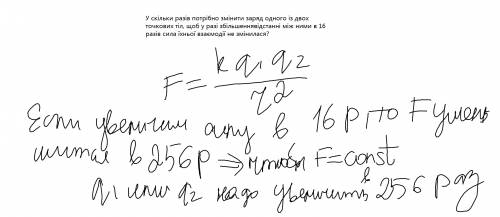 У скільки разів потрібно змінити заряд одного із двох
точкових тіл, щоб у разі збільшеннявідстанні між ними в 16
разів сила їхньої взаємодії не змінилася?
F = k q1 q2
r2
Если увеличим в 16 р то F умень
шится в 256 р ⇒ чтобы F = const
q1 или q2 надо увеличить в 256 раз